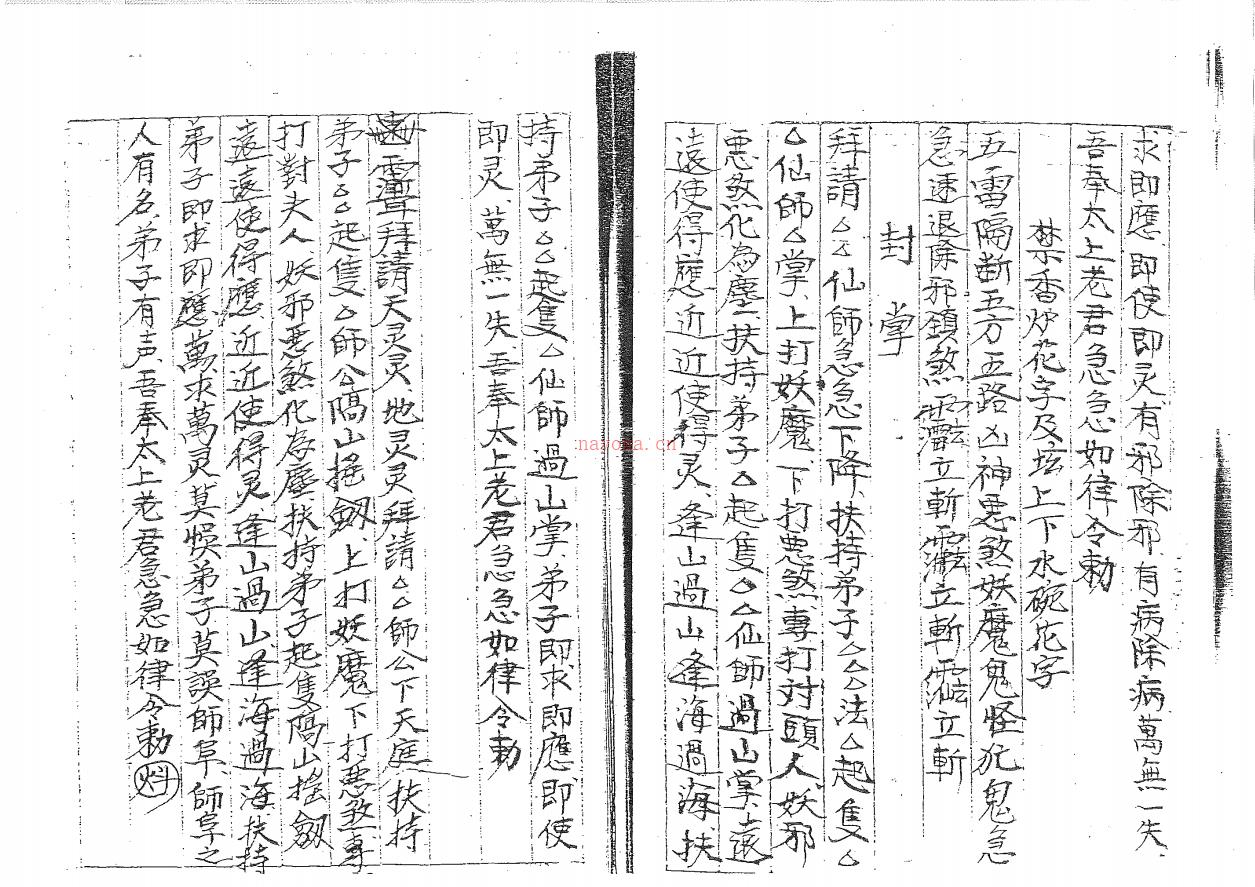 求即應即使即灵有邪除邪有病除病萬無一失
吾奉太上老君急急如律令勅
禁香炉花字及坛上下水碗花字
五雷隔断五方五路凶神悪煞妖魔鬼怪犯鬼急
急速退除邪鎮煞 立斬 立斬 立斬
封掌
拜請△△仙師急急下降、扶持弟子△△法△起隻△
△仙師△掌、上打妖魔、下打悪煞專打对頭人妖邪
悪煞化為塵、扶持弟子△起隻△△仙師過山掌、遠
遠使得應近近使得灵、逢山過山逢海過海、扶
持弟子△△起隻△仙師過山掌、弟子即求即應即使
即灵、萬無一失吾奉太上老君急急如律令勅
拜請天灵灵、地灵灵拜請△△師公下天庭、扶持
弟子△△起隻△師公隔山搖劔、上打妖魔下打悪煞專
打對夫人妖邪悪煞化為塵、扶持弟子起隻隔山搖劔
遠遠使得應近近使得灵、逢山過山、逢海過海、扶持
弟子即求即應、萬求萬灵、莫悞弟子莫誤師阜、師阜之
人有名、弟子有声、吾奉太上老君急急如律令勅
nayona.cn